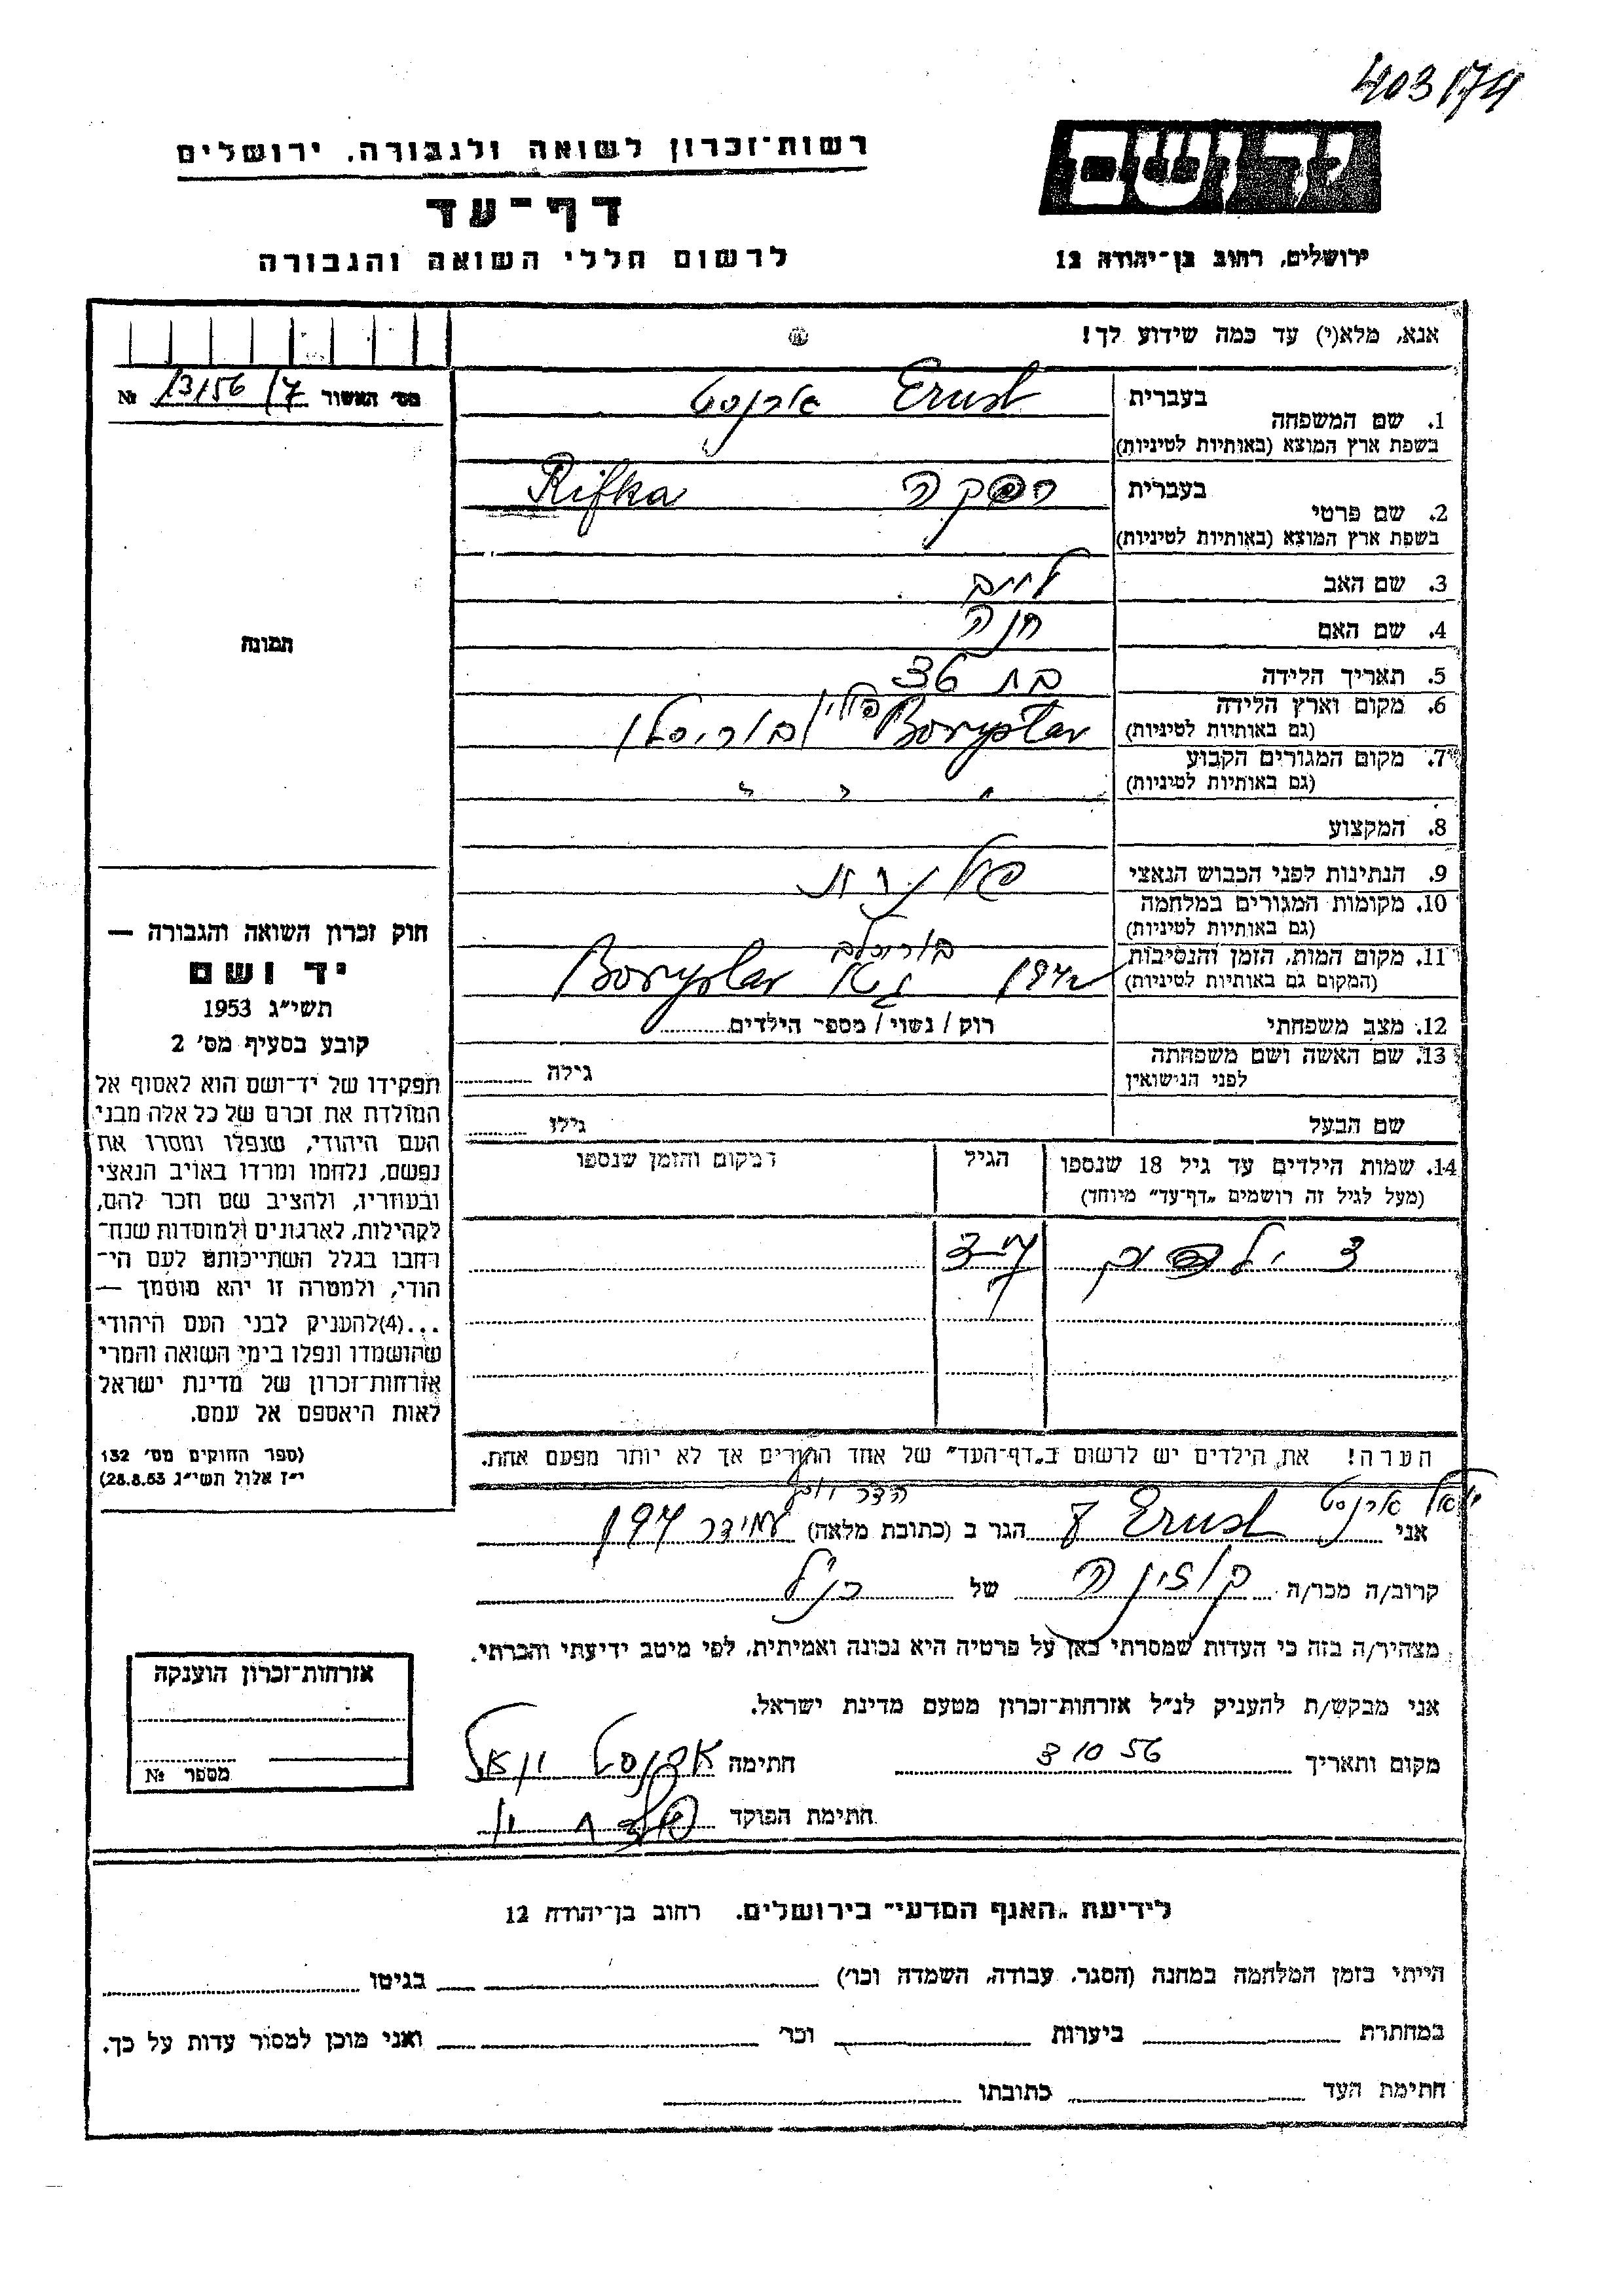 403174
רשות־זכרון לשואה ולגבורה, ירושלים
יד ושם
דף־עד
לרשום חללי השואה והגבורה
ירושלים, רחוב בן־יהודה 12
אנא, מלא(י) עד כמה שידוע לך!
מס׳ האשור 7/ 13/56 №
בעברית
1. שם המשפחה Ernst ארנסט
בשפת ארץ המוצא (באותיות לטיניות)
בעברית
2. שם פרטי רפקה Rifka
בשפת ארץ המוצא (באותיות לטיניות)
3. שם האב
4. שם האם חנה
תמונה
5. תאריך הלידה בת
6. מקום וארץ הלידה Boryslav פולין
(גם באותיות לטיניות)
7. מקום המגורים הקבוע
(גם באותיות לטיניות)
8. המקצוע
9. הנתינות לפני הכבוש הנאצי פולנית
10. מקומות המגורים במלחמה
(גם באותיות לטיניות)
11. מקום המות, הזמן והנסיבות 1942 Boryslav
(המקום גם באותיות לטיניות)
12. מצב משפחתי רוק / נשוי / מספר הילדים
13. שם האשה ושם משפחתה גילה
לפני הנישואין
שם הבעל גילו
14. שמות הילדים עד גיל 18 שנספו הגיל המקום והזמן שנספו
(מעל לגיל זה רושמים „דף־עד״ מיוחד)
3
הערה! את הילדים יש לרשום ב„דף־העד״ של אחד ההורים אך לא יותר מפעם אחת.
חוק זכרון השואה והגבורה —
יד ושם
תשי״ג 1953
קובע בסעיף מס׳ 2
תפקידו של יד־ושם הוא לאסוף אל
המולדת את זכרם של כל אלה מבני
העם היהודי, שנפלו ומסרו את
נפשם, נלחמו ומרדו באויב הנאצי
ובעוזריו, ולהציב שם וזכר להם,
לקהילות, לארגונים ולמוסדות שנח־
רבו בגלל השתייכותם לעם הי־
הודי, ולמטרה זו יהא מוסמך —
...(4)להעניק לבני העם היהודי
שהושמדו ונפלו בימי השואה והמרי
אזרחות־זכרון של מדינת ישראל
לאות היאספם אל עמם.
(ספר החוקים מס׳ 132
י״ז אלול תשי״ג 28.8.53)
אני ארנסט Ernst הגר ב (כתובת מלאה) עמידר 194
קרוב/ה מכר/ה קוזינה של הנ״ל
מצהיר/ה בזה כי העדות שמסרתי כאן על פרטיה היא נכונה ואמיתית, לפי מיטב ידיעתי והכרתי.
אני מבקש/ת להעניק לנ״ל אזרחות־זכרון מטעם מדינת ישראל.
מקום ותאריך 3 10 56 חתימה ארנסט
חתימת הפוקד
אזרחות־זכרון הוענקה
מספר №
לידיעת „האגף המדעי״ בירושלים. רחוב בן־יהודה 12
הייתי בזמן המלחמה במחנה (הסגר, עבודה, השמדה וכו׳) בגיטו
במחתרת ביערות וכו׳ ואני מוכן למסור עדות על כך.
חתימת העד כתובתו